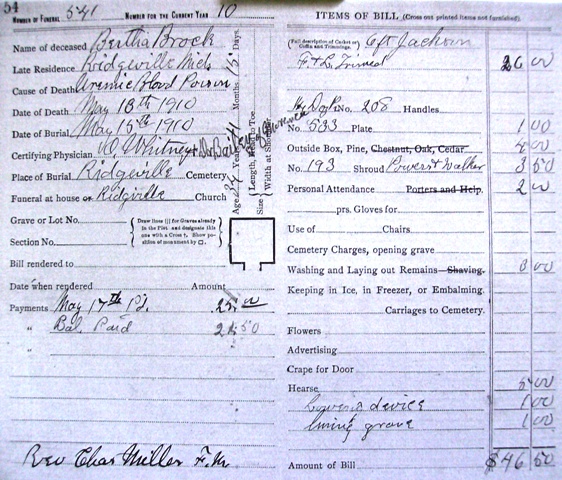 54
NUMBER OF FUNERAL 541 NUMBER FOR THE CURRENT YEAR 10
Name of deceased Bertha Brock
Late Residence Ridgeville Mich
Cause of Death Uremic Blood Poison
Date of Death May 13th 1910
Date of Burial May 15th 1910
Certifying Physician W Whitney + Dr Bailey
Place of Burial Ridgeville Cemetery
Funeral at house or Ridgville Church
Age Years Months 15 Days.
Size { Length, Head to Toe
Width at Shoulder
Grave or Lot No.
Section No.
{ Draw lines ||| for Graves already in the Plot and designate this one with a Cross †. Show position of monument by □. }
Bill rendered to
Date when rendered Amount
Payments May 17th Pd. 25.00
" Bal. Paid 21 50
"
Rev Chas Miller
ITEMS OF BILL (Cross out printed items not furnished)
(Full description of Casket or Coffin and Trimmings.) 6ft Jackson
F + L Trimed 26 00
No. 208 Handles
No. 533 Plate 1 00
Outside Box, Pine, Chestnut, Oak, Cedar 4 00
No. 193 Shroud Powers + Walker 3 50
Personal Attendance Porters and Help. 2 00
prs. Gloves for
Use of Chairs
Cemetery Charges, opening grave
Washing and Laying out Remains—Shaving. 3 00
Keeping in Ice, in Freezer, or Embalming.
Carriages to Cemetery.
Flowers
Advertising
Crape for Door
Hearse 5 00
Lowering device 1 00
lining grave 1 00
Amount of Bill $46 50